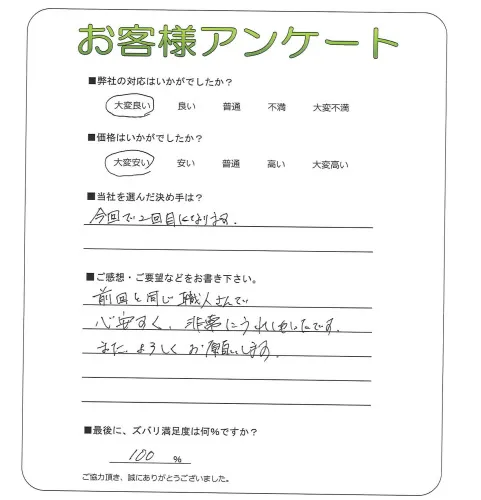 お客様アンケート
■弊社の対応はいかがでしたか？
大変良い 良い 普通 不満 大変不満
■価格はいかがでしたか？
大変安い 安い 普通 高い 大変高い
■当社を選んだ決め手は？
今回で2回目になります.
■ご感想・ご要望などをお書き下さい。
前回と同じ職人さんで
心安すく、非常にうれしかったです.
また よろしく お願いします.
■最後に、ズバリ満足度は何%ですか？
100 %
ご協力頂き、誠にありがとうございました。